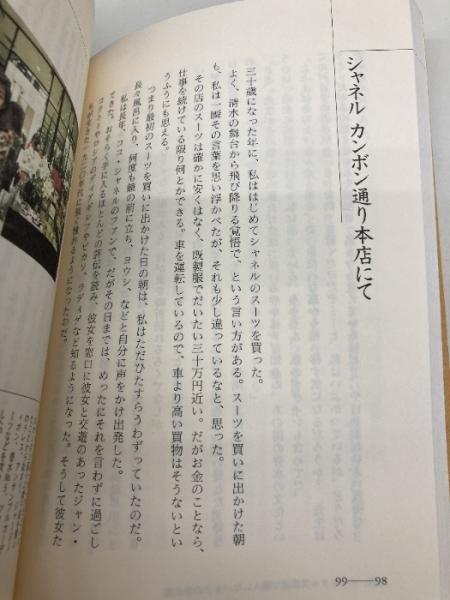 シャネル カンボン通り本店にて
三十歳になった年に、私ははじめてシャネルのスーツを買った。
よく、清水の舞台から飛び降りる覚悟で、という言い方がある。スーツを買いに出かけた朝
も、私は一瞬その言葉を思い浮かべたが、それも少し違っているなと、思った。
その店のスーツは確かに安くはなく、既製服でだいたい三十万円近い。だがお金のことなら、
仕事を続けている限り何とかできる。車を運転しているので、車より高い買物はそうないとい
うふうにも思える。
つまり最初のスーツを買いに出かけた日の朝は、私はただひたすらうわずっていたのだ。
長々風呂に入り、何度も鏡の前に立ち、ヨウシ、などと自分に声をかけ出発した。
私は長年、ココ・シャネルのファンで、だがその日までは、めったにそれを言わずに過ごし
てきた。おそらく手に入るほとんどの評伝を読み、彼女を窓口に彼女と交遊のあったジャン・
コクトーやロシアのディアギレフやピカソ、ラディゲなど知るようになった。そうして彼女た
ちが生きた一九二〇年代に強く憧れるようになったのだ。
99――98